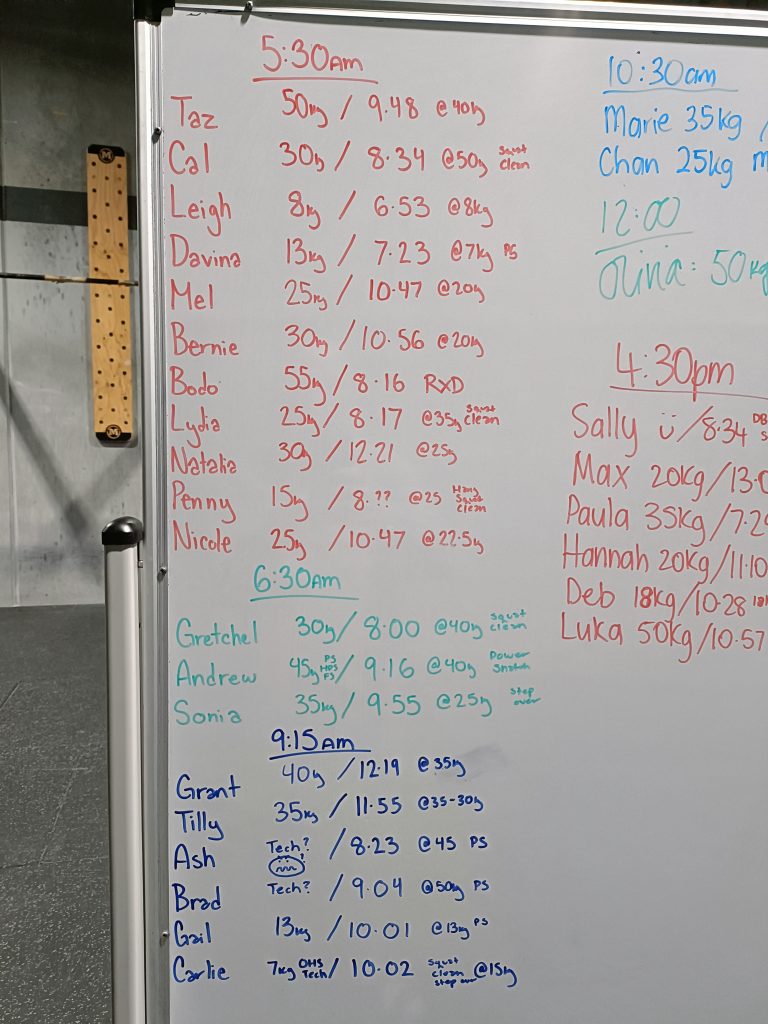 5:30am
Taz 50kg / 9.48 @40kg
Cal 30kg / 8.34 @50kg Squat Clean
Leigh 8kg / 6.53 @8kg
Davina 13kg / 7.23 @7kg PS
Mel 25kg / 10.47 @20kg
Bernie 30kg / 10.56 @20kg
Bodo 55kg / 8.16 RXD
Lydia 25kg / 8.17 @35kg Squat Clean
Natalia 30kg / 12.21 @25kg
Penny 15kg / 8.?? @25 Hang Squat Clean
Nicole 25kg / 10.47 @22.5kg
6:30am
Gretchel 30kg / 8.00 @40kg Squat Clean
Andrew 45kg PS HPS FS / 9.16 @40kg Power Snatch
Sonia 35kg / 9.55 @25kg Step over
9:15am
Grant 40kg / 12.19 @35kg
Tilly 35kg / 11.55 @35-30kg
Ash Tech? / 8.23 @45 PS
Brad Tech? / 9.04 @50kg PS
Gail 13kg / 10.01 @13kg PS
Carlie 7kg OHS Tech / 10.02 Squat clean step over @15kg
10:30am
Marie 35kg /
Chan 25kg
12:00
Olivia: 50kg
4:30pm
Sally ü / 8.34 DB
Max 20kg / 13.0
Paula 35kg / 7.29
Hannah 20kg / 11.10
Deb 18kg / 10.28
Luka 50kg / 10.57